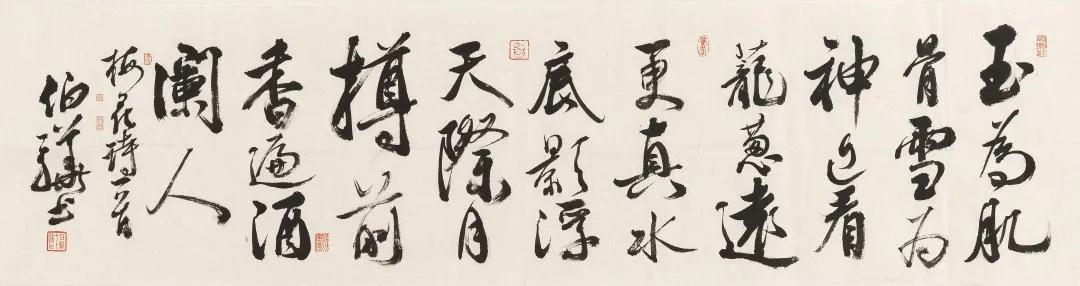 玉為肌
骨雪為
神近看
蘢蔥遠
更真水
底影浮
天際月
樽前
香遍酒
闌人
梅花詩一首
伯驊書